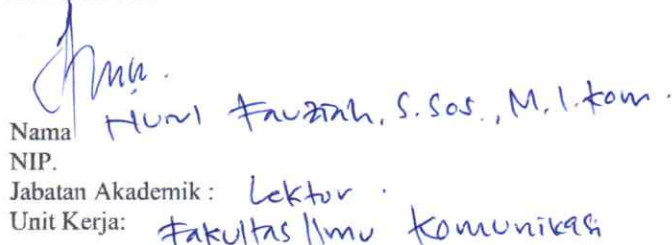 Nama Nurul Fauziah, S.Sos., M.I.Kom.
NIP.
Jabatan Akademik : Lektor
Unit Kerja: Fakultas Ilmu Komunikasi